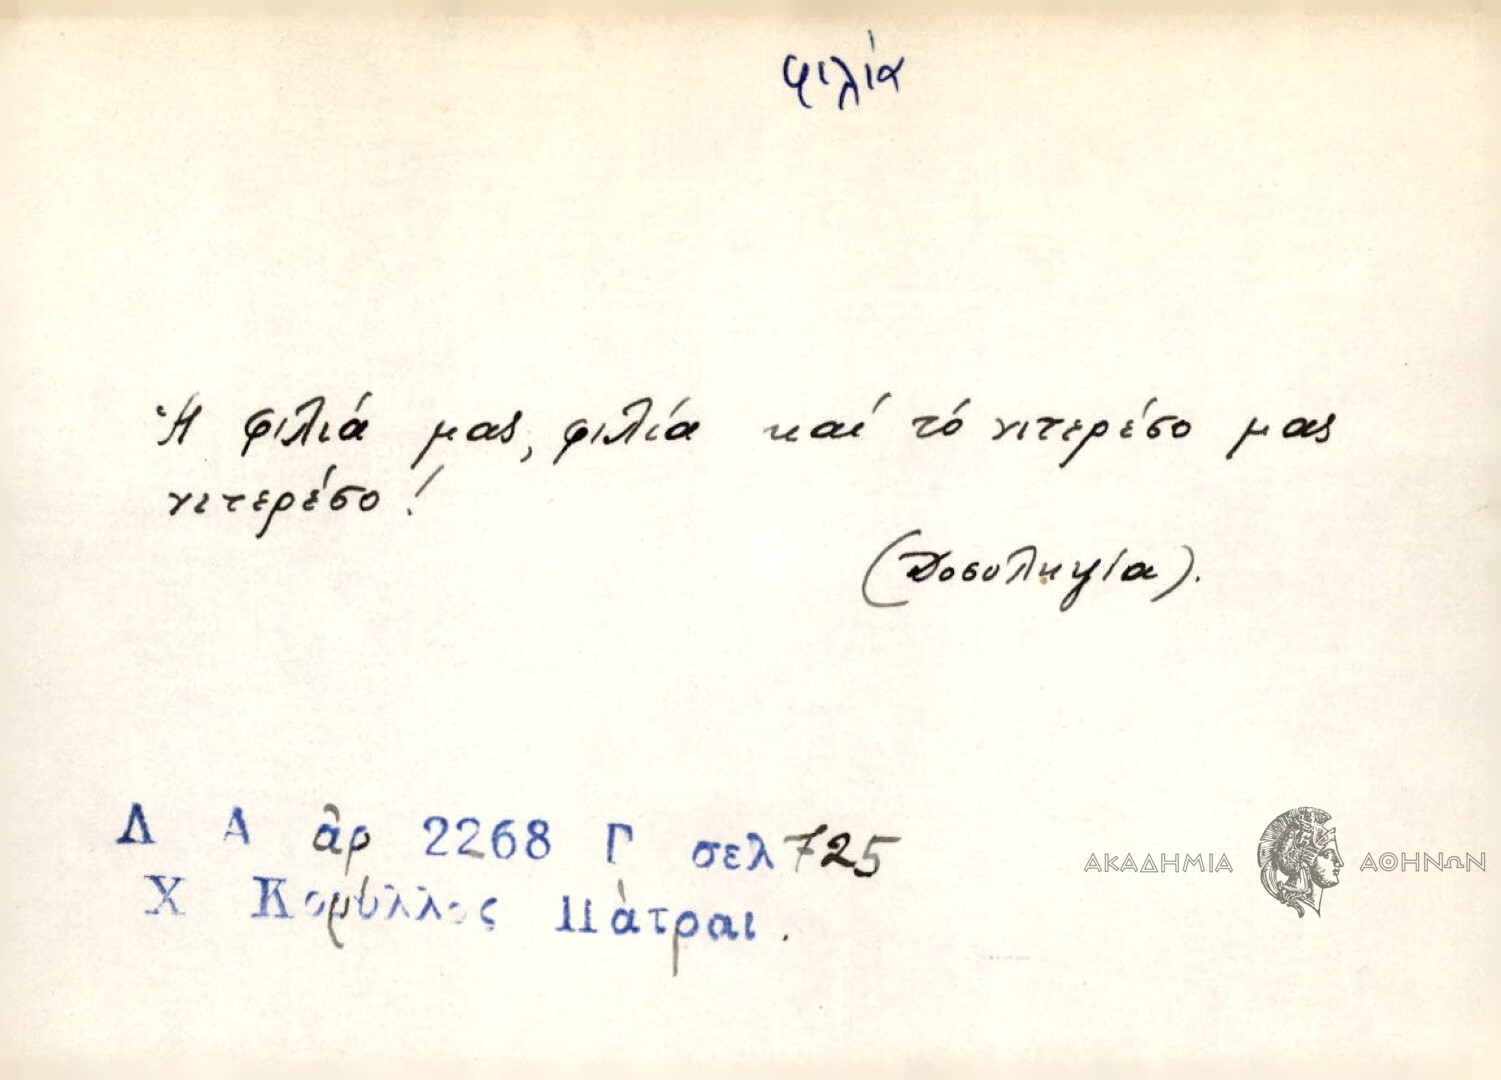 φιλία
Ἡ φιλιά μας, φιλιά καί τό νιτερέσο μας
νιτερέσο!
(Δοσοληψία).
Λ Α ἀρ 2268 Γ σελ 725
Χ Κορύλλος Πάτραι.
ΑΚΑΔΗΜΙΑ ΑΘΗΝΩΝ